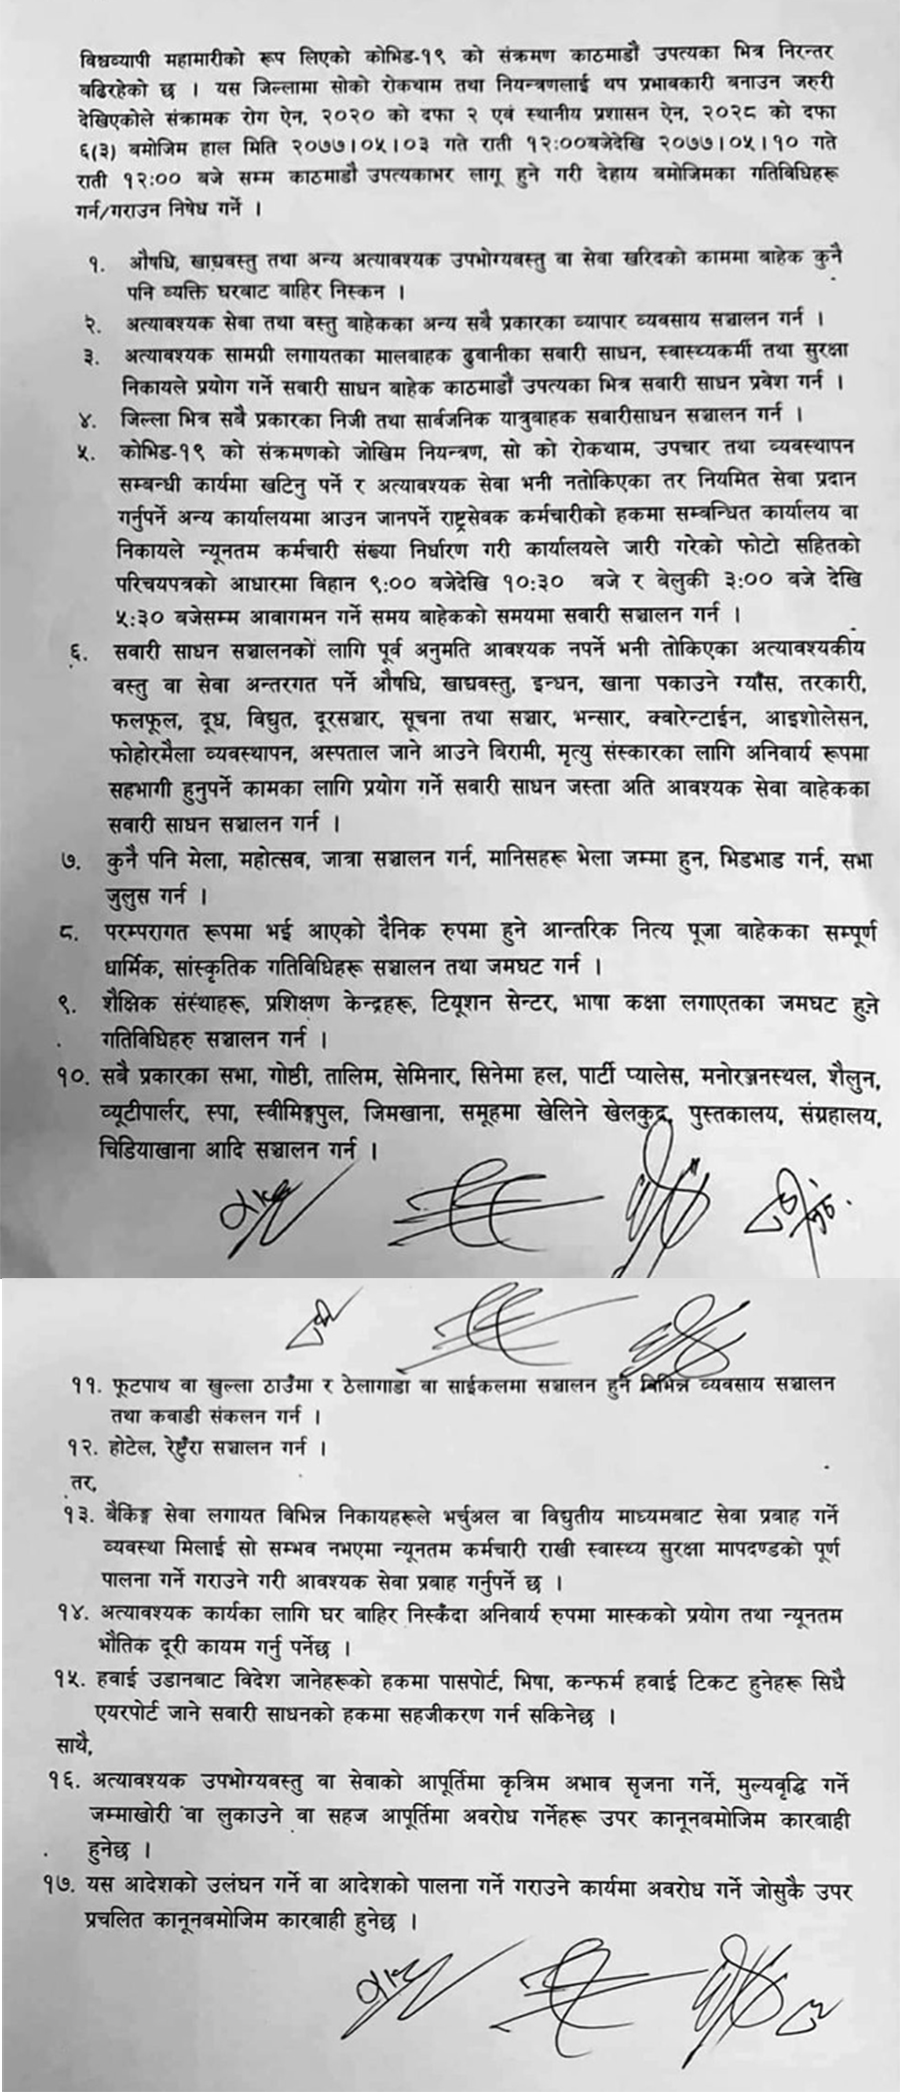 विश्वव्यापी महामारीको रूप लिएको कोभिड-१९ को संक्रमण काठमाडौं उपत्यका भित्र निरन्तर
बढिरहेको छ । यस जिल्लामा सोको रोकथाम तथा नियन्त्रणलाई थप प्रभावकारी बनाउन जरुरी
देखिएकोले संक्रामक रोग ऐन, २०२० को दफा २ एवं स्थानीय प्रशासन ऐन, २०२८ को दफा
६(३) बमोजिम हाल मिति २०७७।०५।०३ गते राती १२:००बजेदेखि २०७७।०५।१० गते
राती १२:०० बजे सम्म काठमाडौं उपत्यकाभर लागू हुने गरी देहाय बमोजिमका गतिविधिहरू
गर्न/गराउन निषेध गर्ने ।
१. औषधि, खाद्यवस्तु तथा अन्य अत्यावश्यक उपभोग्यवस्तु वा सेवा खरिदको काममा बाहेक कुनै
पनि व्यक्ति घरबाट बाहिर निस्कन ।
२. अत्यावश्यक सेवा तथा वस्तु बाहेकका अन्य सबै प्रकारका व्यापार व्यवसाय सञ्चालन गर्न ।
३. अत्यावश्यक सामग्री लगायतका मालबाहक ढुवानीका सवारी साधन, स्वास्थ्यकर्मी तथा सुरक्षा
निकायले प्रयोग गर्ने सवारी साधन बाहेक काठमाडौं उपत्यका भित्र सवारी साधन प्रवेश गर्न ।
४. जिल्ला भित्र सबै प्रकारका निजी तथा सार्वजनिक यात्रुबाहक सवारीसाधन सञ्चालन गर्न ।
५. कोभिड-१९ को संक्रमणको जोखिम नियन्त्रण, सो को रोकथाम, उपचार तथा व्यवस्थापन
सम्बन्धी कार्यमा खटिनु पर्ने र अत्यावश्यक सेवा भनी नतोकिएका तर नियमित सेवा प्रदान
गर्नुपर्ने अन्य कार्यालयमा आउन जानपर्ने राष्ट्रसेवक कर्मचारीको हकमा सम्वन्धित कार्यालय वा
निकायले न्यूनतम कर्मचारी संख्या निर्धारण गरी कार्यालयले जारी गरेको फोटो सहितको
परिचयपत्रको आधारमा विहान ९:०० बजेदेखि १०:३० बजे र बेलुकी ३:०० बजे देखि
५:३० बजेसम्म आवागमन गर्ने समय बाहेकको समयमा सवारी सञ्चालन गर्न ।
६. सवारी साधन सञ्चालनको लागि पूर्व अनुमति आवश्यक नपर्ने भनी तोकिएका अत्यावश्यकीय
वस्तु वा सेवा अन्तरगत पर्ने औषधि, खाद्यवस्तु, इन्धन, खाना पकाउने ग्याँस, तरकारी,
फलफूल, दूध, विद्युत, दूरसञ्चार, सूचना तथा सञ्चार, भन्सार, क्वारेन्टाईन, आइशोलेसन,
फोहोरमैला व्यवस्थापन, अस्पताल जाने आउने बिरामी, मृत्यु संस्कारका लागि अनिवार्य रूपमा
सहभागी हुनुपर्ने कामका लागि प्रयोग गर्ने सवारी साधन जस्ता अति आवश्यक सेवा बाहेकका
सवारी साधन सञ्चालन गर्न ।
७. कुनै पनि मेला, महोत्सव, जात्रा सञ्चालन गर्न, मानिसहरू भेला जम्मा हुन, भिडभाड गर्न, सभा
जुलुस गर्न ।
८. परम्परागत रूपमा भई आएको दैनिक रुपमा हुने आन्तरिक नित्य पूजा बाहेकका सम्पूर्ण
धार्मिक, सांस्कृतिक गतिविधिहरू सञ्चालन तथा जमघट गर्न ।
९. शैक्षिक संस्थाहरू, प्रशिक्षण केन्द्रहरू, टियूशन सेन्टर, भाषा कक्षा लगाएतका जमघट हुने
गतिविधिहरु सञ्चालन गर्न ।
१०. सबै प्रकारका सभा, गोष्ठी, तालिम, सेमिनार, सिनेमा हल, पार्टी प्यालेस, मनोरञ्जनस्थल, शैलुन,
व्यूटीपार्लर, स्पा, स्वीमिङ्गपुल, जिमखाना, समूहमा खेलिने खेलकुद, पुस्तकालय, संग्रहालय,
चिडियाखाना आदि सञ्चालन गर्न ।
११. फूटपाथ वा खुल्ला ठाउँमा र ठेलागाडा वा साईकलमा सञ्चालन हुने विभिन्न व्यवसाय सञ्चालन
तथा कवाडी संकलन गर्न ।
१२. होटेल, रेष्टुँरा सञ्चालन गर्न ।
तर,
१३. बैकिङ्ग सेवा लगायत विभिन्न निकायहरूले भर्चुअल वा विद्युतीय माध्यमबाट सेवा प्रवाह गर्ने
व्यवस्था मिलाई सो सम्भव नभएमा न्यूनतम कर्मचारी राखी स्वास्थ्य सुरक्षा मापदण्डको पूर्ण
पालना गर्ने गराउने गरी आवश्यक सेवा प्रवाह गर्नुपर्ने छ ।
१४. अत्यावश्यक कार्यका लागि घर बाहिर निस्कँदा अनिवार्य रुपमा मास्कको प्रयोग तथा न्यूनतम
भौतिक दूरी कायम गर्नु पर्नेछ ।
१५. हवाई उडानबाट विदेश जानेहरूको हकमा पासपोर्ट, भिषा, कन्फर्म हवाई टिकट हुनेहरू सिधै
एयरपोर्ट जाने सवारी साधनको हकमा सहजीकरण गर्न सकिनेछ ।
साथै,
१६. अत्यावश्यक उपभोग्यवस्तु वा सेवाको आपूर्तिमा कृत्रिम अभाव सृजना गर्ने, मुल्यवृद्धि गर्ने
जम्माखोरी वा लुकाउने वा सहज आपूर्तिमा अवरोध गर्नेहरू उपर कानूनबमोजिम कारबाही
हुनेछ ।
१७. यस आदेशको उलंघन गर्ने वा आदेशको पालना गर्ने गराउने कार्यमा अवरोध गर्ने जोसुकै उपर
प्रचलित कानूनबमोजिम कारबाही हुनेछ ।